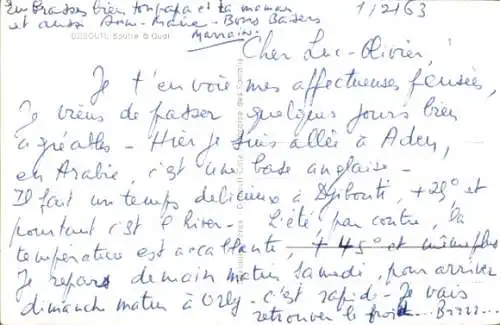 Embrasses bien ton papa et ta maman
et aussi Anne-Marie - Bons Baisers
Marraine
1/2/63
DJIBOUTI. Boutre à Quai
Cher Luc-Olivier,
Je t'envoie mes affectueuses pensées,
Je viens de passer quelques jours bien
agréables - Hier je suis allée à Aden,
en Arabie, c'est une base anglaise -
Il fait un temps délicieux à Djibouti, + 25° et
pourtant c'est l'hiver - L'été, par contre, la
température est accablante, + 45° et même plus
Je repars demain matin Samedi, pour arriver
dimanche matin à Orly - c'est rapide - Je vais
retrouver le froid... Brrr...